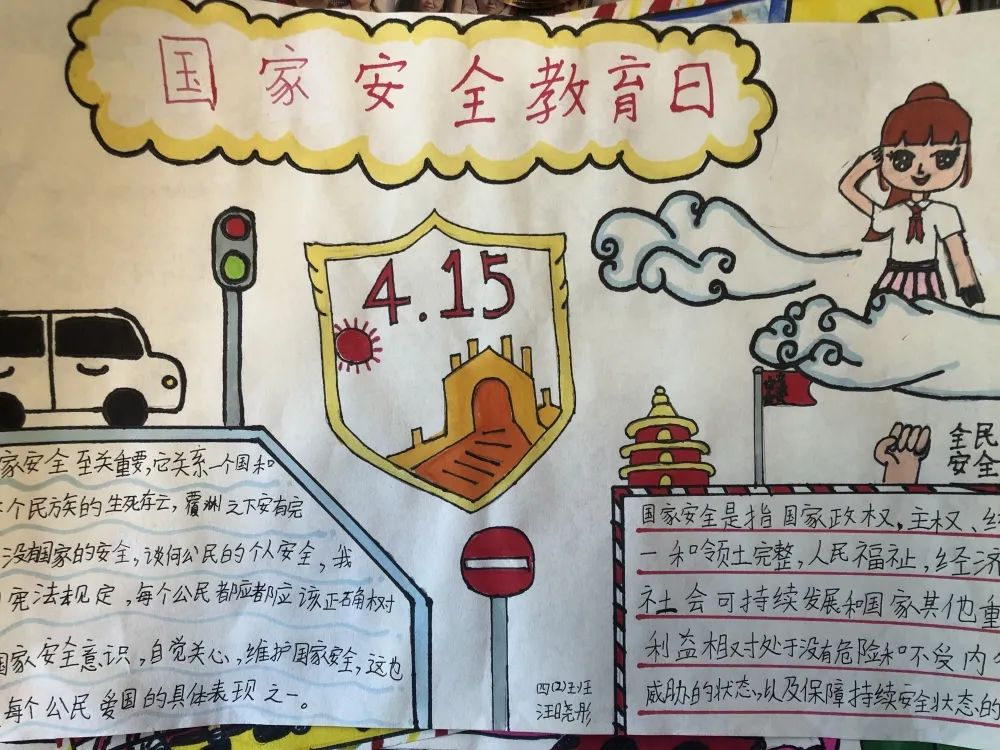 国家安全教育日
4.15
全民
安全
家安全至关重要,它关系一个国和
个民族的生死存云,覆洲之下安有完
没有国家的安全,谈何公民的个人安全,我
宪法规定,每个公民都应都应该正确对
国家安全意识,自觉关心,维护国家安全,这也
每个公民爱国的具体表现之一。
国家安全是指国家政权,主权、统
一和领土完整,人民福祉,经济
社会可持续发展和国家其他重
利益相对处于没有危险和不受内外
威胁的状态,以及保障持续安全状态的
四(2)班
汪晓彤